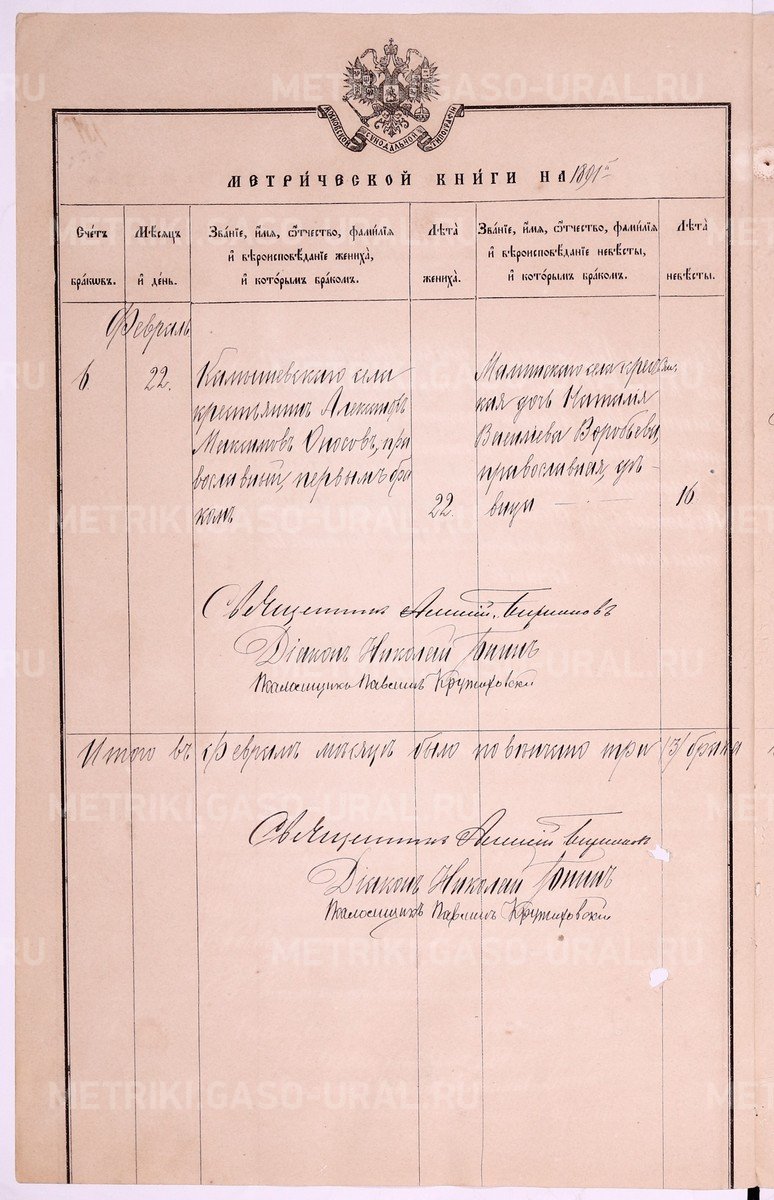 МОСКОВСКОЙ СѴНОДАЛЬНОЙ ТИПОГРАФІИ
МЕТРИ́ЧЕСКОЙ КНИ́ГИ НА 1891 г.
Сче́тъ бра́кѡвъ.
Мѣ́сяцъ и҆ де́нь.
Зва́нїе, и҆́мя, ѻ҆́тчество, фами́лїя
и҆ вѣроисповѣ́данїе жениха̀,
и҆ кото́рымъ бра́комъ.
Лѣ́та жениха̀.
Зва́нїе, и҆́мя, ѻ҆́тчество, фами́лїя
и҆ вѣроисповѣ́данїе невѣ́сты,
и҆ кото́рымъ бра́комъ.
Лѣ́та невѣ́сты.
Февраль
6
22.
Камышевскаго села
крестьянинъ Александръ
Максимовъ Оносовъ, пра
вославный, первымъ бра
комъ
22.
Маминскаго села крестьян
ская дочь Наталія
Васильева Воробьева,
православная, дѣ-
вица
16
Священникъ Алексій
Діаконъ Николай Топинъ
Псаломщикъ Кружиховскій
Итого въ Февралѣ мѣсяцѣ было повѣнчано три (3) брака
Священникъ Алексій
Діаконъ Николай Топинъ
Псаломщикъ Кружиховскій
METRIKI.GASO-URAL.RU